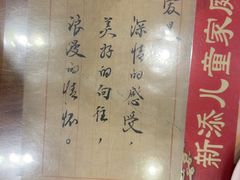 爱是
深情的感受，
美好的向往，
浪漫的情怀。
新添儿童家庭